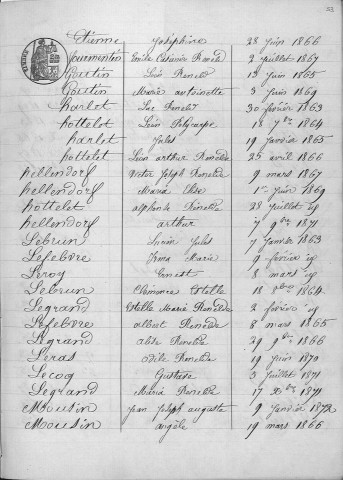 Etienne Joséphine 28 Juin 1866
Gourmentin Emile Casimir Renelde 2 Juillet 1867
Goutin Léon Renelde 13 Juin 1865
Goutin Marie antoinette 3 Juin 1869
harlot Luc Renelde 30 février 1863
hottelet Léon Polycarpe 18 7bre 1864
harlot Jules 19 Janvier 1865
hottelet Léon arthur Renelde 25 avril 1866
hellendorf Victor Joseph Renelde 9 mars 1867
hellendorf Maria Elise 1er Juin 1869
hottelet alphonse Renelde 28 Juillet id
hellendorf arthur 7 9bre 1871
Lebrun Lucien Jules 7 Janvier 1863
Lefebvre Irma Marie 9 février id
Leroy Ernest 8 mars id
Lebrun Clémence Estelle 18 1864
Legrand Estelle Maria Renelde 2 février id
Lefebvre albert Renelde 8 mars 1865
Legrand alise Renelde 29 9bre 1866
Leras Odile Renelde 19 Juin 1870
Lecoq Gustave 3 Juillet 1871
Legrand Maria Renelde 17 Xbre 1871
Mousin Jean Joseph auguste 9 Janvier 1872
Mousin angèle 19 mars 1866